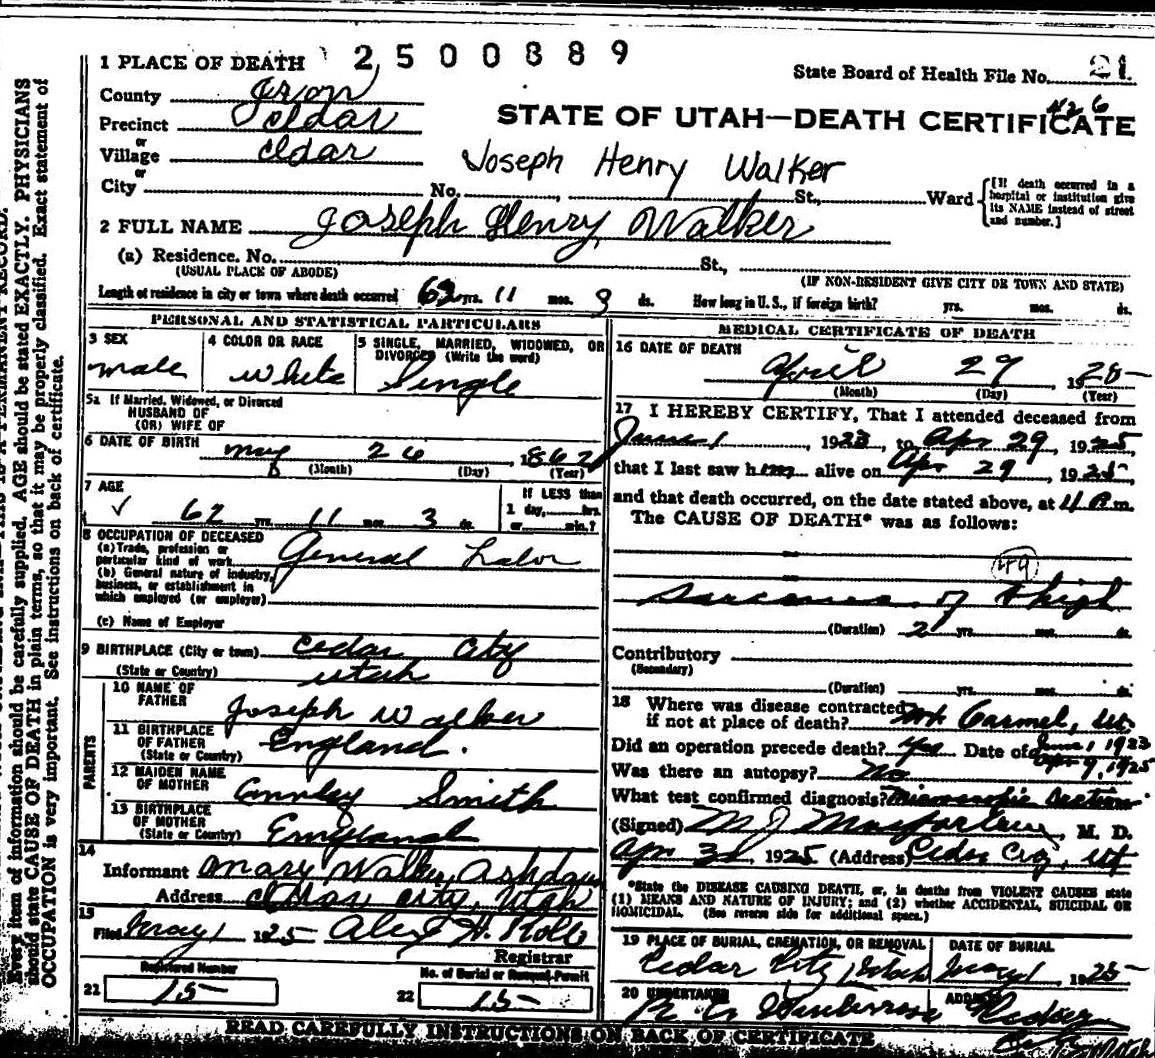 1 PLACE OF DEATH 2500889
State Board of Health File No. 21
County Iron
426
STATE OF UTAH—DEATH CERTIFICATE
Precinct Cedar
or
Village Cedar
or
Joseph Henry Walker
City No. St., Ward
[If death occurred in a hospital or institution give its NAME instead of street and number.]
2 FULL NAME Joseph Henry Walker
(a) Residence. No. St.,
(USUAL PLACE OF ABODE) (IF NON-RESIDENT GIVE CITY OR TOWN AND STATE)
Length of residence in city or town where death occurred 63 yrs. 11 mos. 3 ds. How long in U. S., if foreign birth? yrs. mos. ds.
PERSONAL AND STATISTICAL PARTICULARS
3 SEX
male
4 COLOR OR RACE
White
5 SINGLE, MARRIED, WIDOWED, OR DIVORCED (Write the word)
Single
5a If Married, Widowed, or Divorced
HUSBAND OF
(OR) WIFE OF
6 DATE OF BIRTH May 26 1862
(Month) (Day) (Year)
7 AGE
62 yrs. 11 mos. 3 ds.
If LESS than
1 day, hrs.
or min.?
8 OCCUPATION OF DECEASED
(a) Trade, profession or
particular kind of work General Labor
(b) General nature of industry,
business, or establishment in
which employed (or employer)
(c) Name of Employer
9 BIRTHPLACE (City or town) Cedar City
(State or Country) Utah
PARENTS
10 NAME OF
FATHER Joseph Walker
11 BIRTHPLACE
OF FATHER England.
(State or Country)
12 MAIDEN NAME
OF MOTHER Smith
13 BIRTHPLACE
OF MOTHER
(State or Country) England
14
Informant Mary Walker Ashdown
Address Cedar City, Utah
15
Filed May 1 1925 Alex H. Rollo
Registrar
Registered Number
21 15
No. of Burial or Removal Permit
22 15
MEDICAL CERTIFICATE OF DEATH
16 DATE OF DEATH
April 29, 1925
(Month) (Day) (Year)
17 I HEREBY CERTIFY, That I attended deceased from
June 1, 1923, to Apr 29, 1925,
that I last saw him alive on Apr 29, 1925,
and that death occurred, on the date stated above, at 4 P m.
The CAUSE OF DEATH* was as follows:
49
Sarcoma of thigh
(Duration) 2 yrs. mos. ds.
Contributory
(Secondary)
(Duration) yrs. mos. ds.
18 Where was disease contracted
if not at place of death? Mt Carmel, Ut.
Did an operation precede death? Yes Date of June 1 1923
Apr 9, 1925
Was there an autopsy? No
What test confirmed diagnosis? Microscopic section
(Signed) M J Macfarlane, M. D.
Apr 30, 1925 (Address) Cedar City, Ut
*State the DISEASE CAUSING DEATH, or, in deaths from VIOLENT CAUSES state
(1) MEANS AND NATURE OF INJURY; and (2) whether ACCIDENTAL, SUICIDAL OR
HOMICIDAL. (See reverse side for additional space.)
19 PLACE OF BURIAL, CREMATION, OR REMOVAL
Cedar City, Utah
DATE OF BURIAL
May 1 1925
20 UNDERTAKER
ADDRESS
Cedar
READ CAREFULLY INSTRUCTIONS ON BACK OF CERTIFICATE
Every item of information should be carefully supplied. AGE should be stated EXACTLY. PHYSICIANS
should state CAUSE OF DEATH in plain terms, so that it may be properly classified. Exact statement of
OCCUPATION is very important. See instructions on back of certificate.